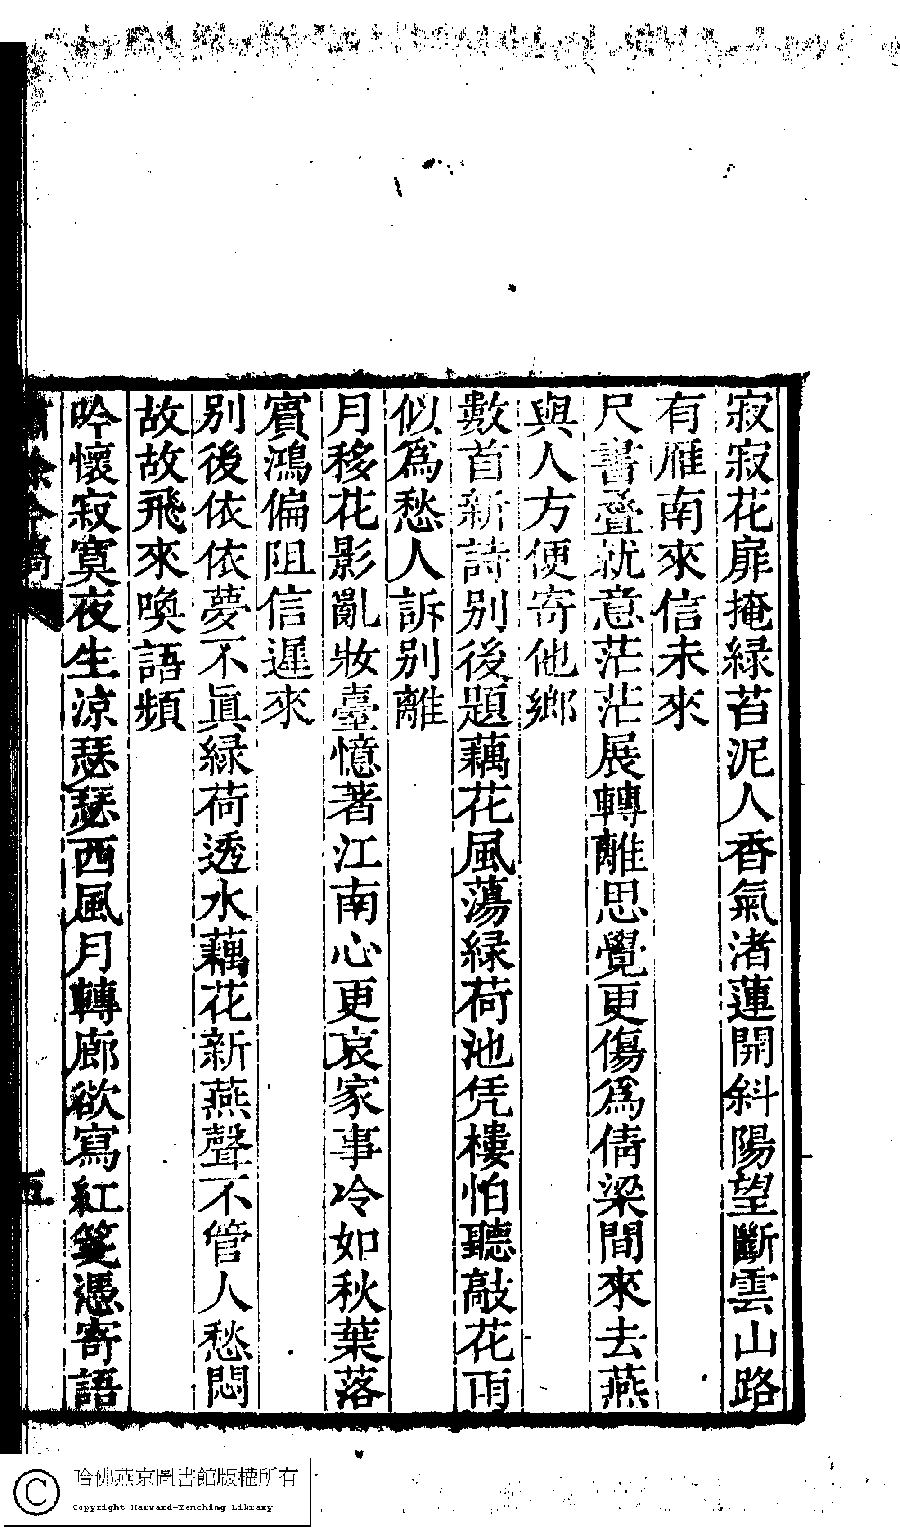 寂寂花扉掩緑苔泥人香氣渚蓮開斜陽望斷雲山路
有雁南來信未來
尺書叠就意茫茫展轉離思覺更傷爲倩梁間來去燕
與人方便寄他鄉
數首新詩别後題藕花風蕩緑荷池凭樓怕聽敲花雨
似爲愁人訴别離
月移花影亂妝臺憶著江南心更哀家事冷如秋葉落
賓鴻偏阻信遲來
别後依依夢不眞緑荷透水藕花新燕聲不管人愁悶
故故飛來喚語頻
吟懷寂寞夜生涼瑟瑟西風月轉廊欲寫紅箋憑寄語
餘今稿
五
哈佛燕京圖書館版權所有
Copyright Harvard-Yenching Library